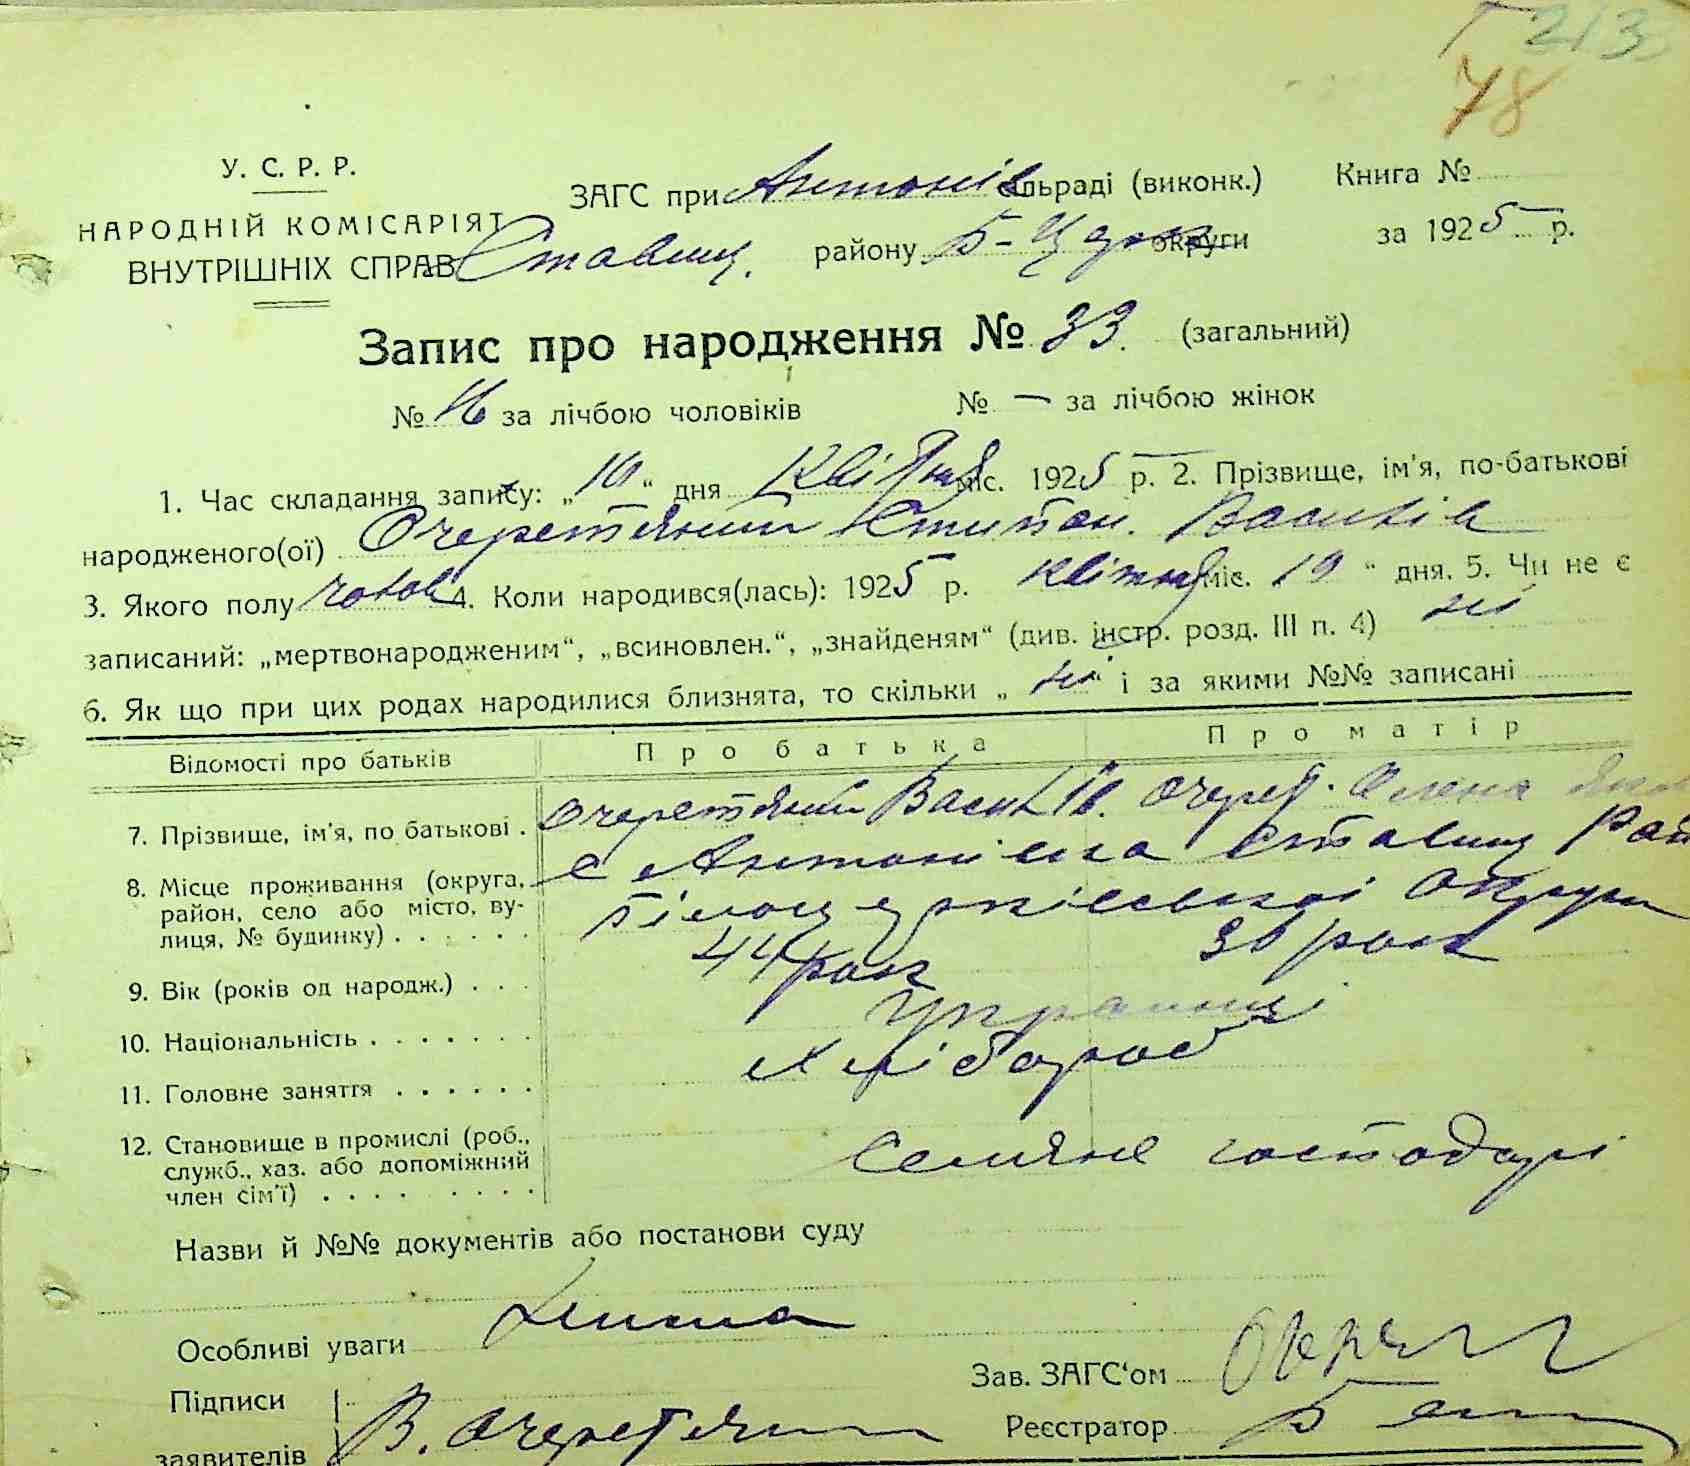 213
78
У. С. Р. Р.
НАРОДНІЙ КОМІСАРІЯТ
ВНУТРІШНІХ СПРАВ
ЗАГС при Антонів сільраді (виконк.) Книга №
Ставищ. району Б-Цер округи за 1925 р.
Запис про народження № 33. (загальний)
№ 16 за лічбою чоловіків № — за лічбою жінок
1. Час складання запису: „10“ дня Квітня міс. 1925 р. 2. Прізвище, ім'я, по-батькові
народженого(ої) Очеретяний Степан. Василів
3. Якого полу чолов 4. Коли народився(лась): 1925 р. квітня міс. 10“ дня. 5. Чи не є
записаний: „мертвонародженим“, „всиновлен.“, „знайденям“ (див. інстр. розд. III п. 4) ні
6. Як що при цих родах народилися близнята, то скільки „ні“ і за якими №№ записані
Відомості про батьків Про батька Про матір
7. Прізвище, ім'я, по батькові . Очеретяний Васил Ів. Очерет. Олена
8. Місце проживання (округа, с Антонівка Ставищ Рай
район, село або місто, ву- Білоцерківської Округи
лиця, № будинку) . . . . . .
9. Вік (років од народж.) . . . 44 рок 36 рок
10. Національність . . . . . . . Українці
11. Головне заняття . . . . . . Хлібороб
12. Становище в промислі (роб., Селяне господарі
служб., хаз. або допоміжний
член сім'ї) . . . . . . . . .
Назви й №№ документів або постанови суду
Особливі уваги
Підписи Зав. ЗАГС'ом
заявителів В. Очеретян Реєстратор